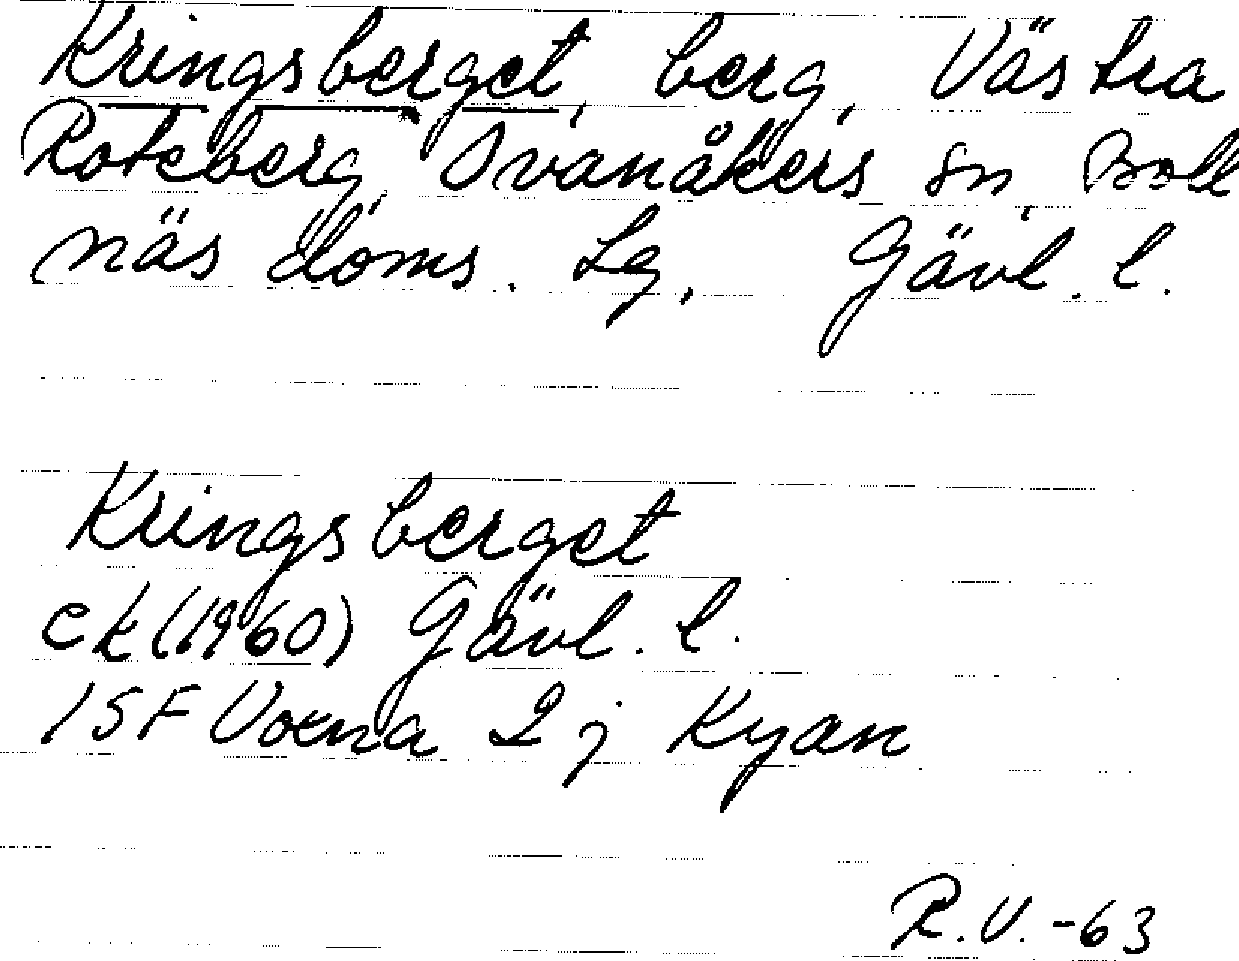 Kringsberget, berg, Västra
Roteberg, Svanåkers sn, Boll
näs doms. Lg, Gävl. l.
Kringsberget
ek (1960) Gävl. l.
15F Voxna 2j Kyan
R.V. -63